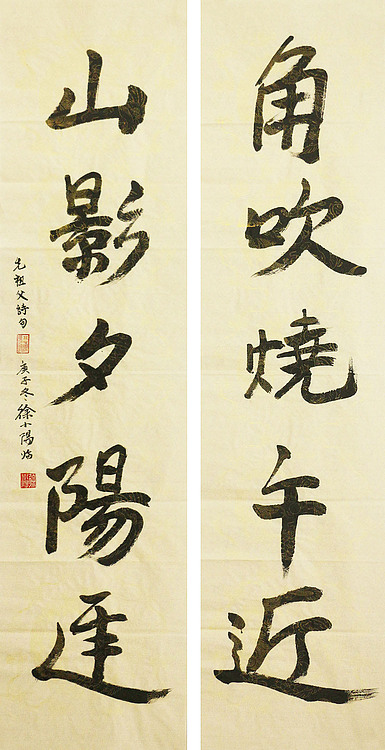 角吹燒午近
山影夕陽遲
先祖父詩句
庚子冬徐小陽